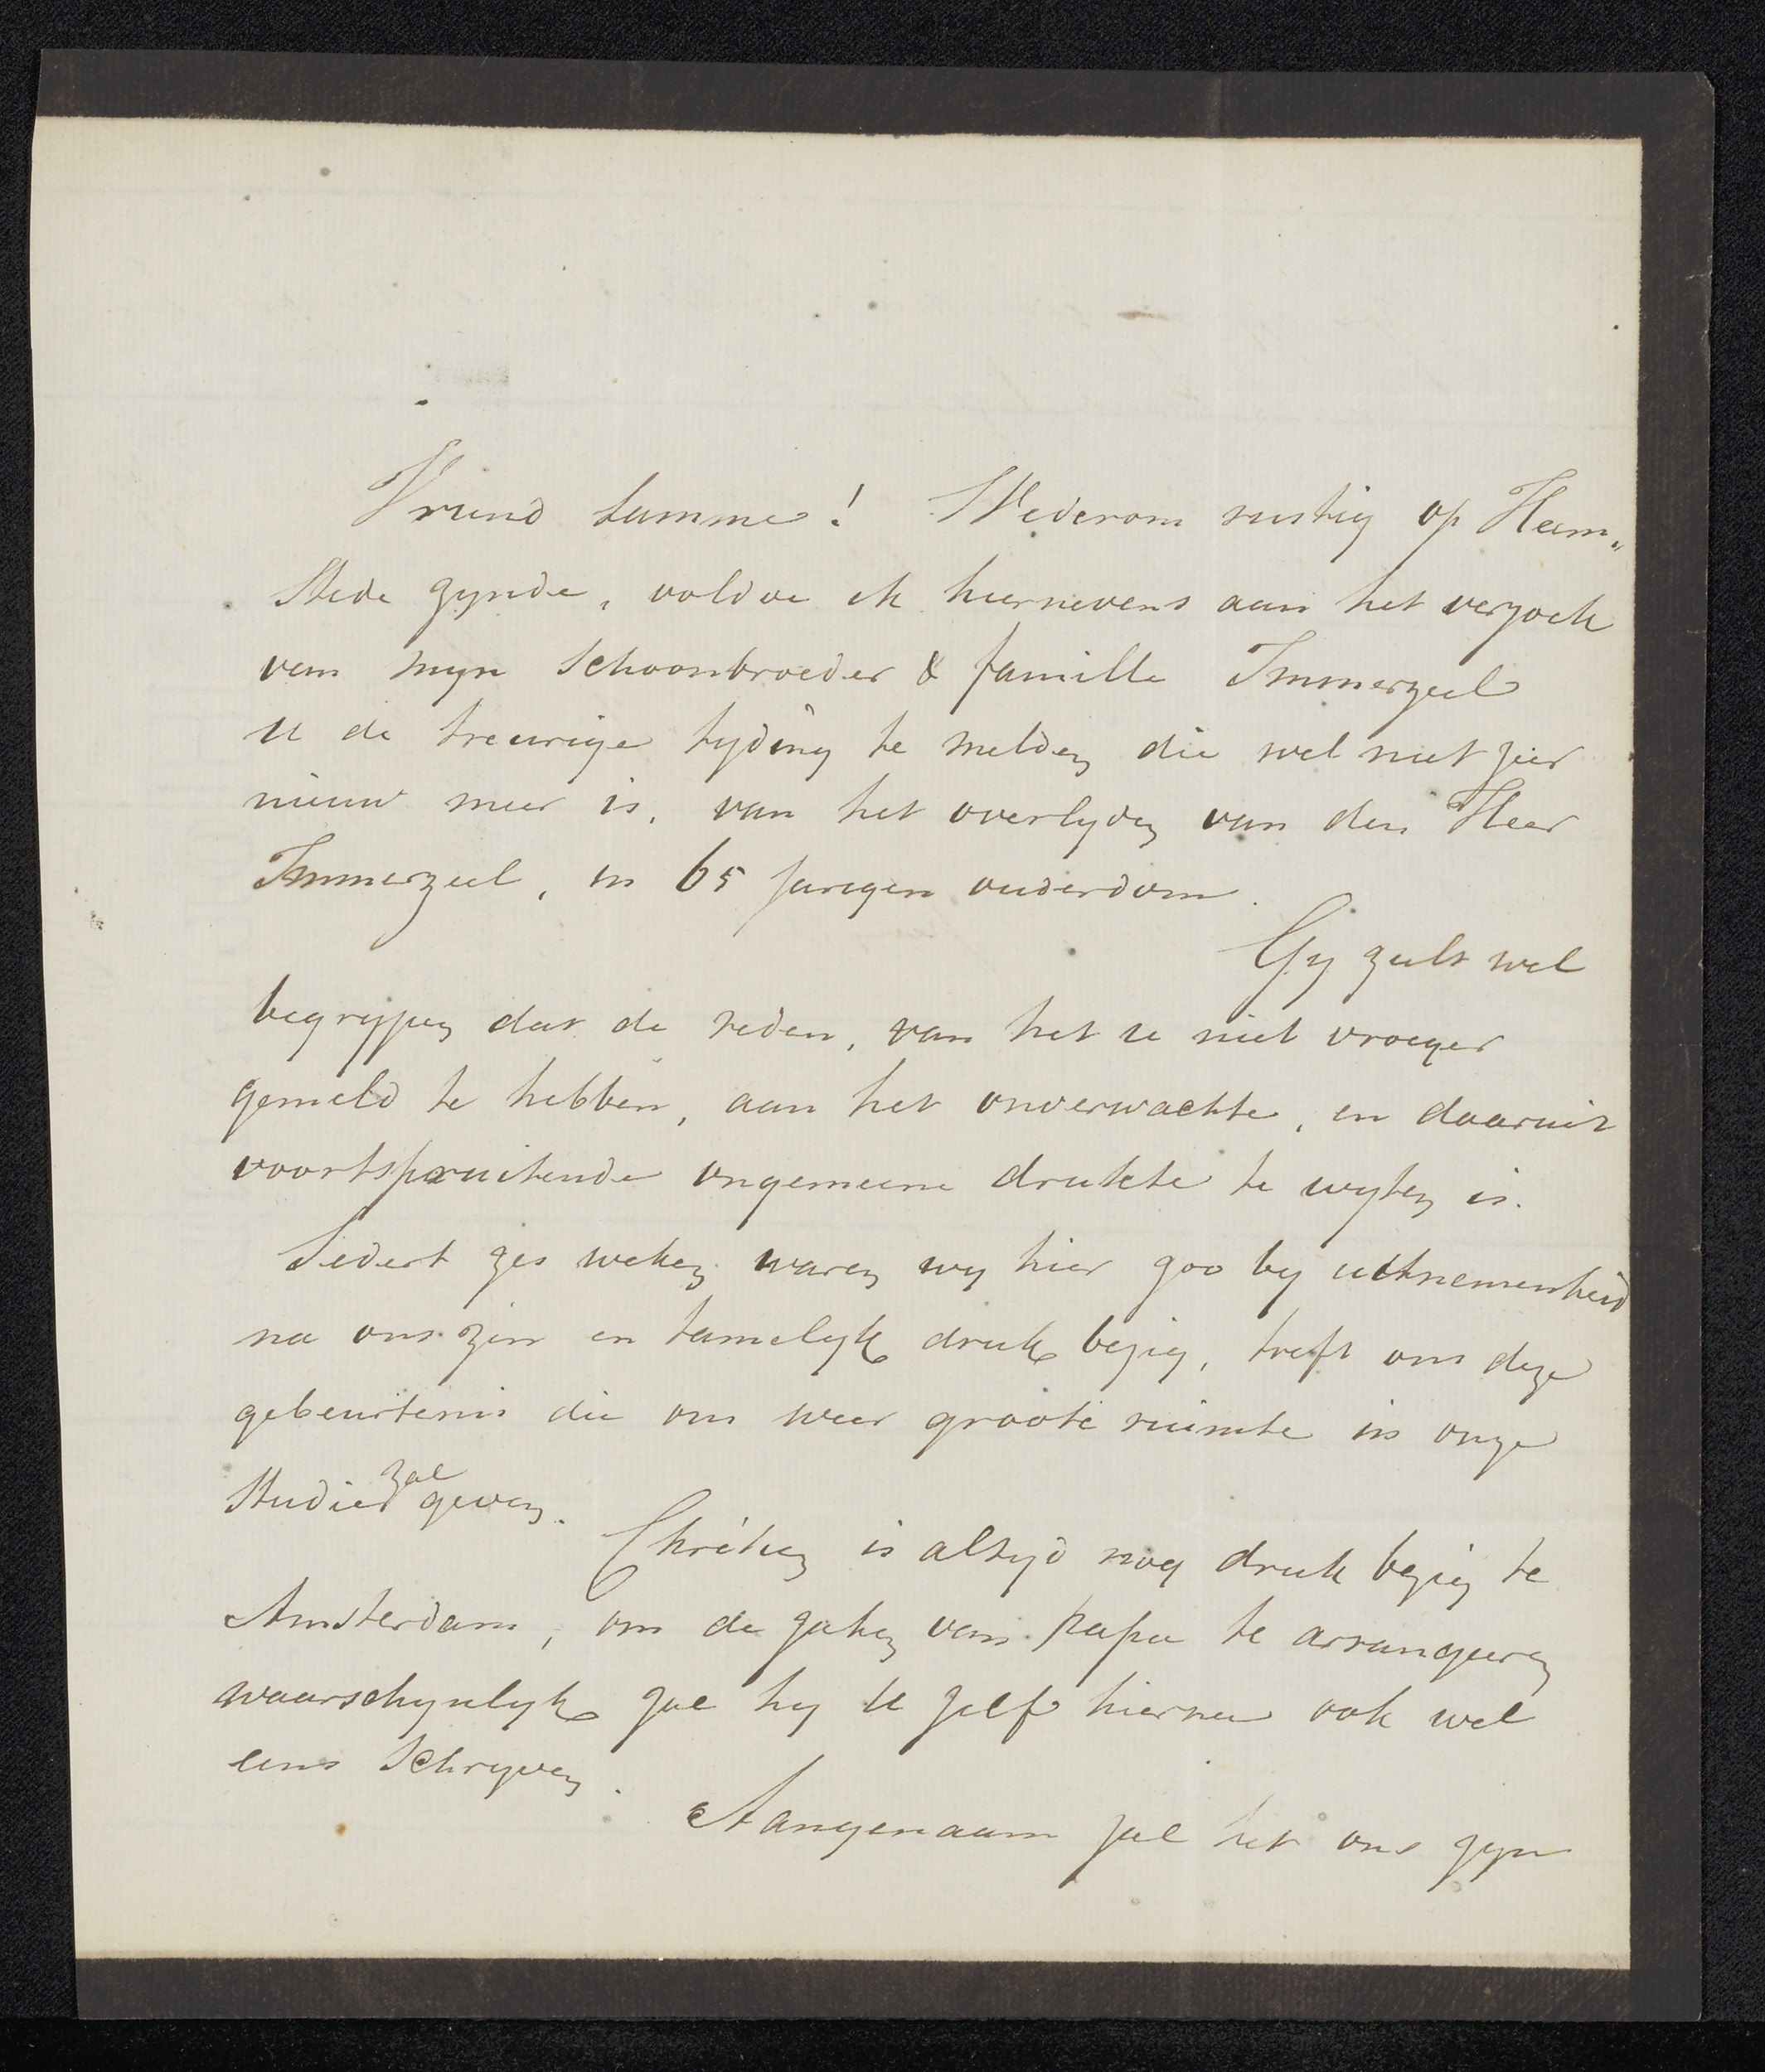 Vriend Lamme! Wederom rustig op Heem„
stede zynde, voldoe ik hiernevens aan het verzoek
van myn Schoonbroeder & familie Immerzeel
U de treurige tyding te melden die wel niet zeer
nieuw meer is, van het overlyden van den Heer
Immerzeel, in 65 Jarigen ouderdom.
Gy zult wel
begrypen dat de reden, van het u niet vroeger
gemeld te hebben, aan het onverwachte, en daaruit
voortspruitende ongemeene drukte te wyten is.
Sedert zes weken waren wy hier zoo by uitnemenheid
na ons zin en tamelyk druk bezig, treft ons deze
gebeurtenis die ons weer groote ruimte in onze
Studien zal geven.
Chrétien is altyd nog druk bezig te
Amsterdam, om de zaken van papa te arrangeeren
waarschynlyk zal hy U zelf hierna ook wel
eens Schryven.
Aangenaam zal het ons zyn